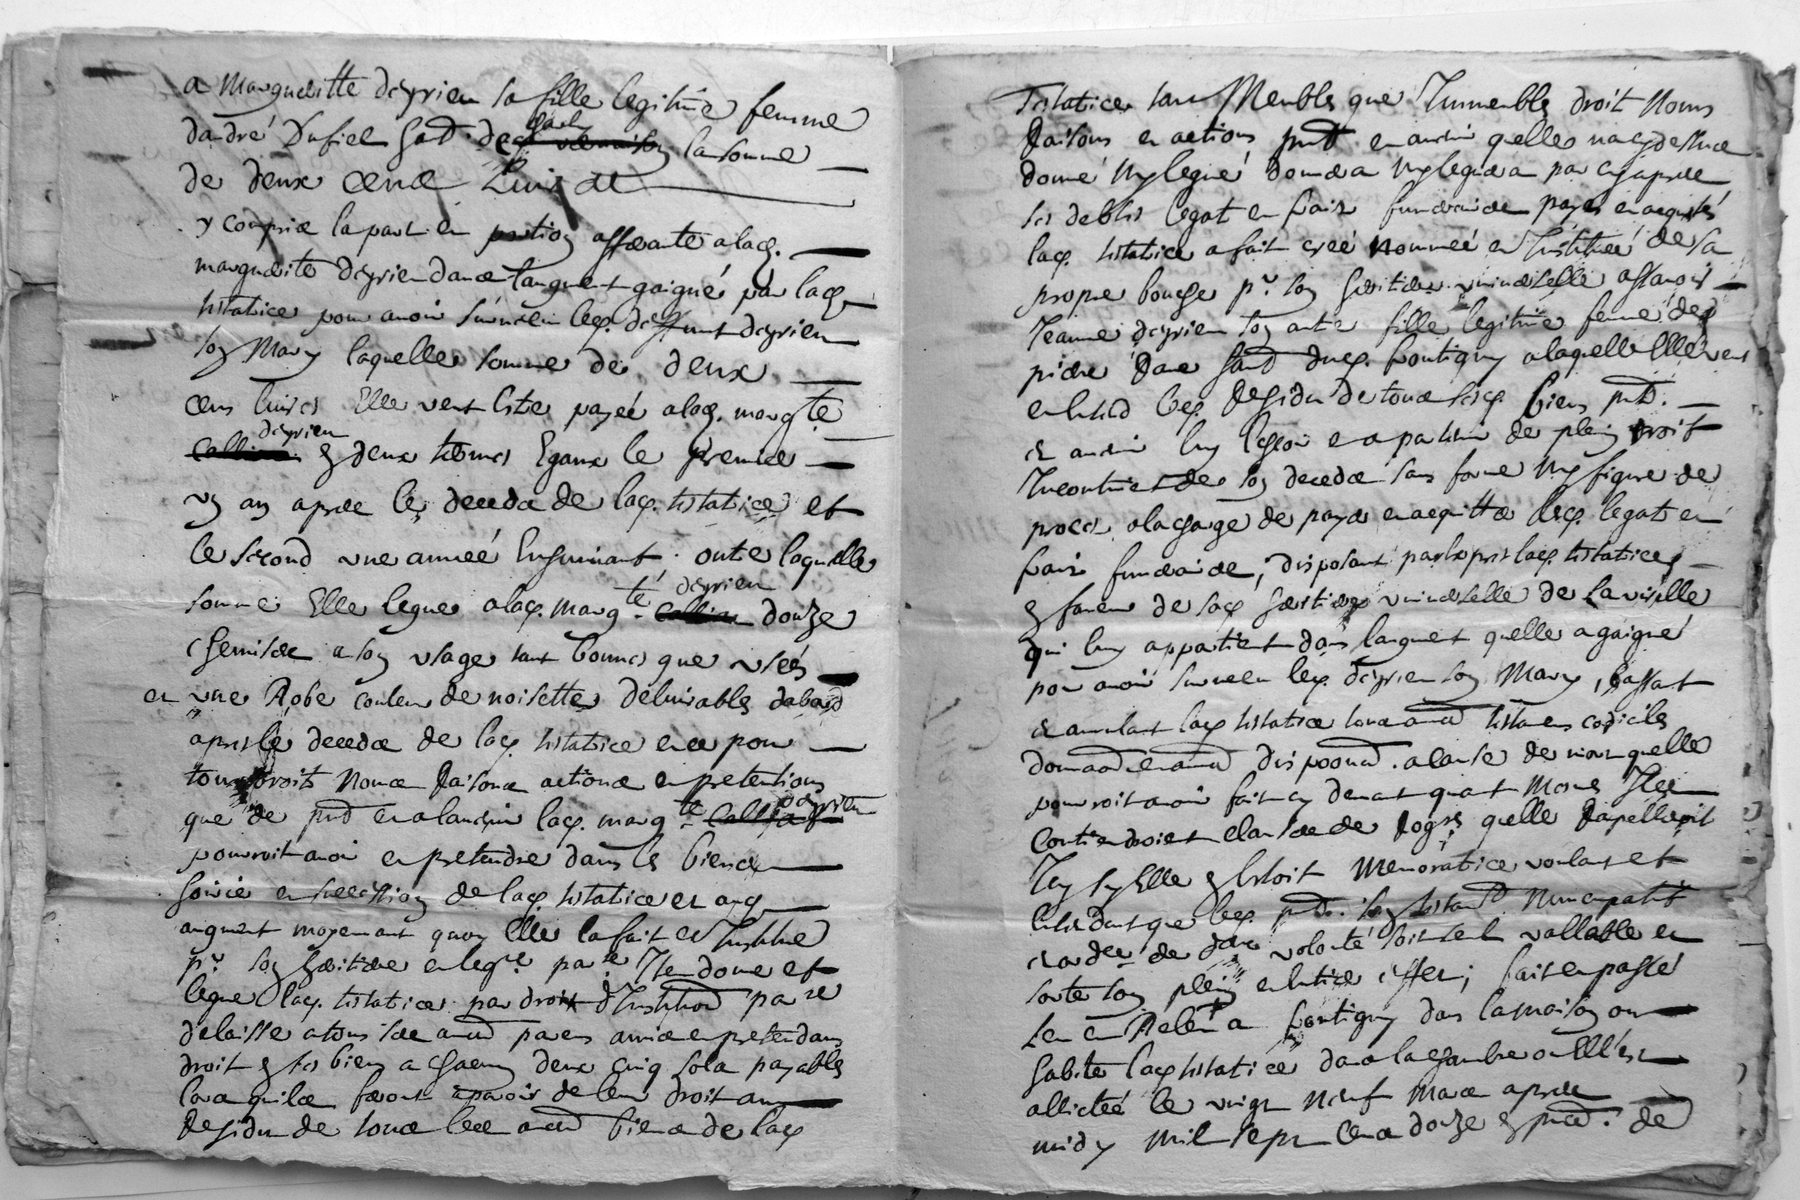 a Margueritte deyrieu sa fille legitime femme
dandré Dufiel la somme
de deux cens Livres
y comprie la part et portion afferante a lad.
marguerite deyrieu dans laugment gaigné par lad.
testatrice pour avoir survescu led. deffunt deyrieu
son Mary laquelle somme de deux
cens livres Elle veut estre payée a lad. margte
deyrieu
en deux termes Egaux le premier
un an apres le decedz de lad. testatrice et
le second une année Ensuivant, outre laquelle
deyrieu
somme Elle legue a lad. margte douze
chemises a son usage tant bonnes que usées
et une Robe couleur de noisette delivrables dabord
apres le decedz de lad. testatrice et ce pour
tous droits Noms Raisons actions et pretentions
deyrieu
que de prnt et a ladvenir lad. margte
pourroit avoir et pretendre dans les biens
hoirie et succession de lad. testatrice et aud.
augment moyenant quoy Elle la fait et Institue
pr. son heritiere et legre. pare. Item donne et
legue lad. testatrice par droit dInstitution pare
delaisse a tous ses autres parens amis et pretendans
droit en ses biens a chacun deux cinq sols payables
lors quils feront aparoir de leur droit au
Residu de tous les autres biens de lad.
Testatrice tant Meubles que Immeubles droit Noms
Raisons et actions prnt et advenir quelle na cy dessus
donné Ny legué donnera Ny leguera par cy apres
ses debtes legat et frais funeraires payés et acquités
lad. testatrice a fait creé nommeé et Instituée de sa
propre bouche pr. son heritiere universelle assavoir
Jeanne deyrieu son autre fille legitime femme de
pierre dud. Frontigny a laquelle Elle veut
et entend led. Residu de tous sesd. biens prnt.
et advenir luy eschoir et apartenir de plein droit
Incontinent de son decedz sans forme Ny figure de
proces a la charge de payer et acquitter lesd. legats et
frais funeraires, disposant par expres lad. testatrice
en faveur de sad. heritiere universelle de la virille
qui luy appartient dans laugment quelle a gaigné
pour avoir survescu led. deyrieu son Mary, Cassant
et annulant lad. testatrice tous autres testamens codicils
donnaons et autres dispoons. a cause de mort quelle
pourroit avoir fait cy devant quant mesmes Ilz
Contiendroient clauses de Rogre quelle Rapelleroit
Icy sy Elle en Estoit Memoratice voulant et
entendant que led. prnt. son testament Nuncupatif
et ordre de dere volonté soit seul vallable et
sorte son plein et entier effet; fait et passé
leu et Relu a Frontigny dans la maison ou
habite lad. testatrice dans la chambre ou Elle est
allictée le vingt neuf Mars apres
midy Mil sept cens douze en prnce. de